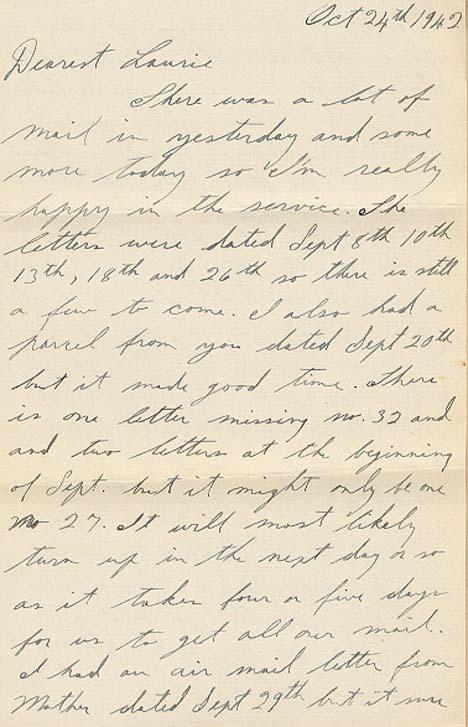 Oct 24th 1942
Dearest Laurie
There was a lot of
mail in yesterday and some
more today so I'm really
happy in the service. The
letters were dated Sept 8th 10th
13th, 18th and 26th so there is still
a few to come. I also had a
parcel from you dated Sept 20th
but it made good time. There
is one letter missing no. 32 and
and two letters at the beginning
of Sept. but it might only be one
no 27. It will most likely
turn up in the next day or so
as it takes four or five days
for us to get all our mail.
I had an air mail letter from
Mother dated Sept 29th but it sure